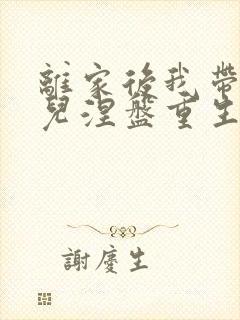 離家後我帶
兒涅盤重生
謝慶生